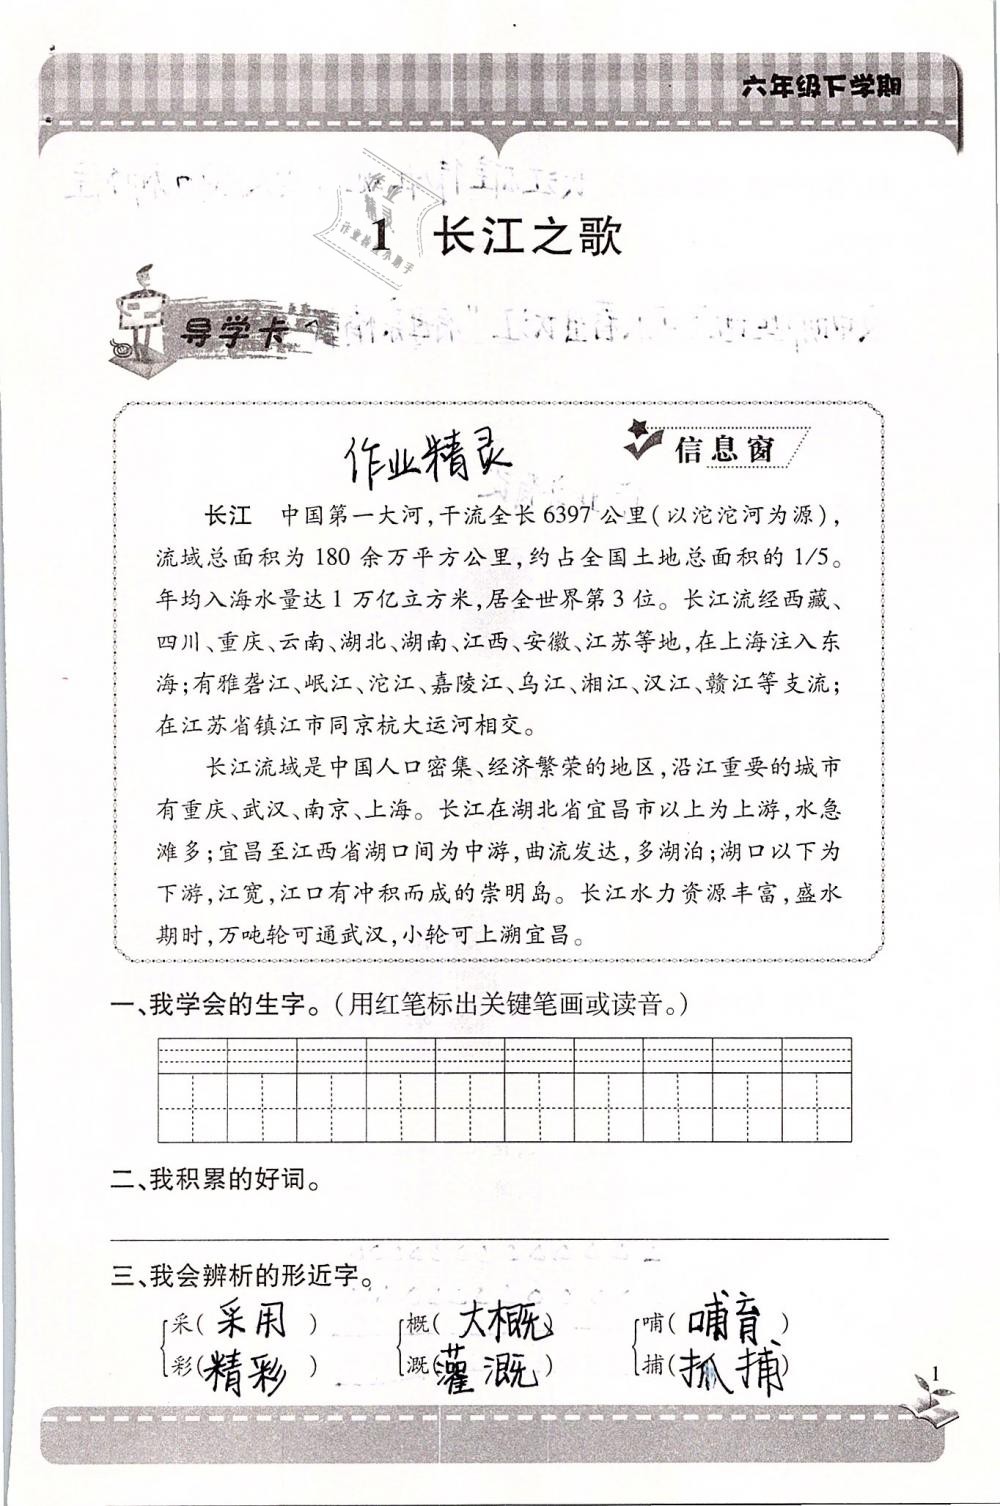 六年级下学期
1 长江之歌
导学卡
作业精灵
信息窗
长江 中国第一大河,干流全长6397公里(以沱沱河为源),
流域总面积为180余万平方公里,约占全国土地总面积的1/5。
年均入海水量达1万亿立方米,居全世界第3位。长江流经西藏、
四川、重庆、云南、湖北、湖南、江西、安徽、江苏等地,在上海注入东
海;有雅砻江、岷江、沱江、嘉陵江、乌江、湘江、汉江、赣江等支流;
在江苏省镇江市同京杭大运河相交。
长江流域是中国人口密集、经济繁荣的地区,沿江重要的城市
有重庆、武汉、南京、上海。长江在湖北省宜昌市以上为上游,水急
滩多;宜昌至江西省湖口间为中游,曲流发达,多湖泊;湖口以下为
下游,江宽,江口有冲积而成的崇明岛。长江水力资源丰富,盛水
期时,万吨轮可通武汉,小轮可上溯宜昌。
一、我学会的生字。(用红笔标出关键笔画或读音。)
二、我积累的好词。
三、我会辨析的形近字。
采(采用) 概(大概) 哺(哺育)
彩(精彩) 溉(灌溉) 捕(抓捕)
1